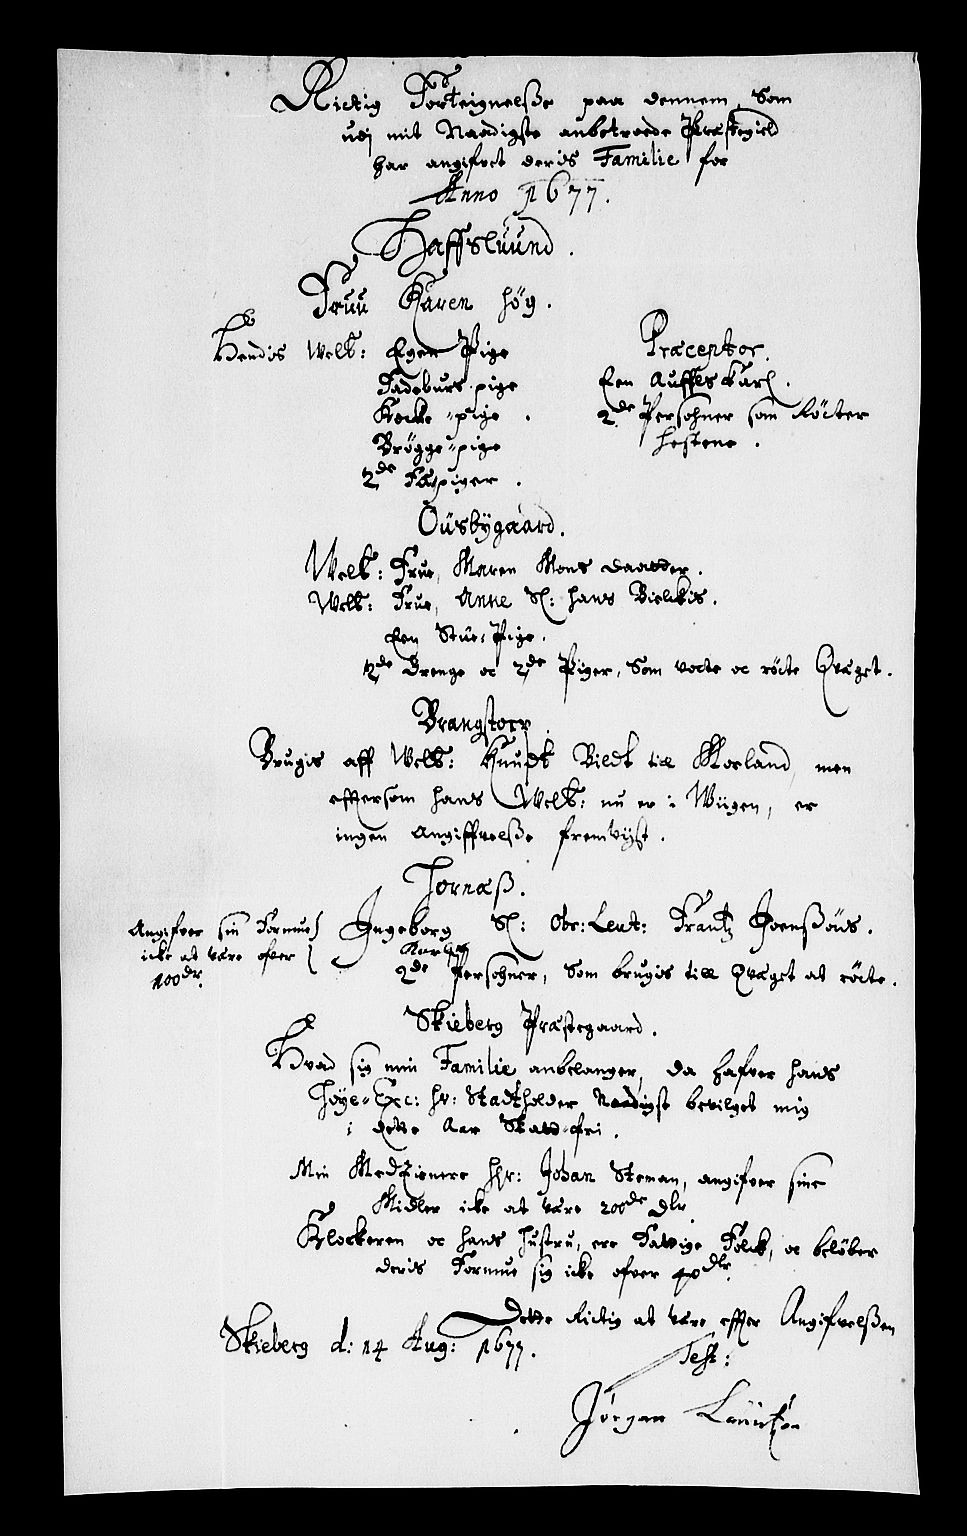 Rictig Forteignelße paa dennem, Som
udj mit Naadigste anbetroede Præstegield
har angifvet deris Familie for
Anno 1677.
Haffsluund.
Fruu Karen Høg.
Hendis Welb: Egen Pige
Fadeburs pige
Kocke-pige.
Brøgge-pige
2de Fæpiger.
Præceptor.
Een Auffls Karl.
2de Persohner som Røcter
Hestene.
Oüsbÿgaard.
Welb: Frue, Maren Mons daatter.
Welb: Frue, Anne Sl: Hans Bielckis.
Een Stue-Pige.
2de Drenge oc 2de Piger, som vocte oc røcte Qvæget.
Brangstorp.
Brugis aff Welb: Knudt Bildt till Morland, men
effterson hans Welb: nu er i Wiigen, er
ingen Angiffvelße fremvijst.
Tornæß.
Ingeborg Sl: Obr: Leut: Frantz Joenßøns.
Angifver sin Formue
icke at være ofver
100 dr.
Karlig
2de Persohner, som brugis till Qvæget at røcte.
Skieberg Præstegaard.
Hvad sig min Familie anbelanger, da hafver hans
Høye-Exc: Hr: Stadtholder Naadigst bevilget mig
i dette Aar Skatt-fri.
Min Medtienere Hr: Johan Steman, angifver sine
Midler icke at være 200de dlr
Klockeren oc hans Hustru, ere Fattige Folck, oc beløber
deris Formue sig icke ofver 40 dlr.
Dette Rictig at være effter Angifvelßen
Skieberg d: 14 Aug: 1677.
Test:
Jørgen